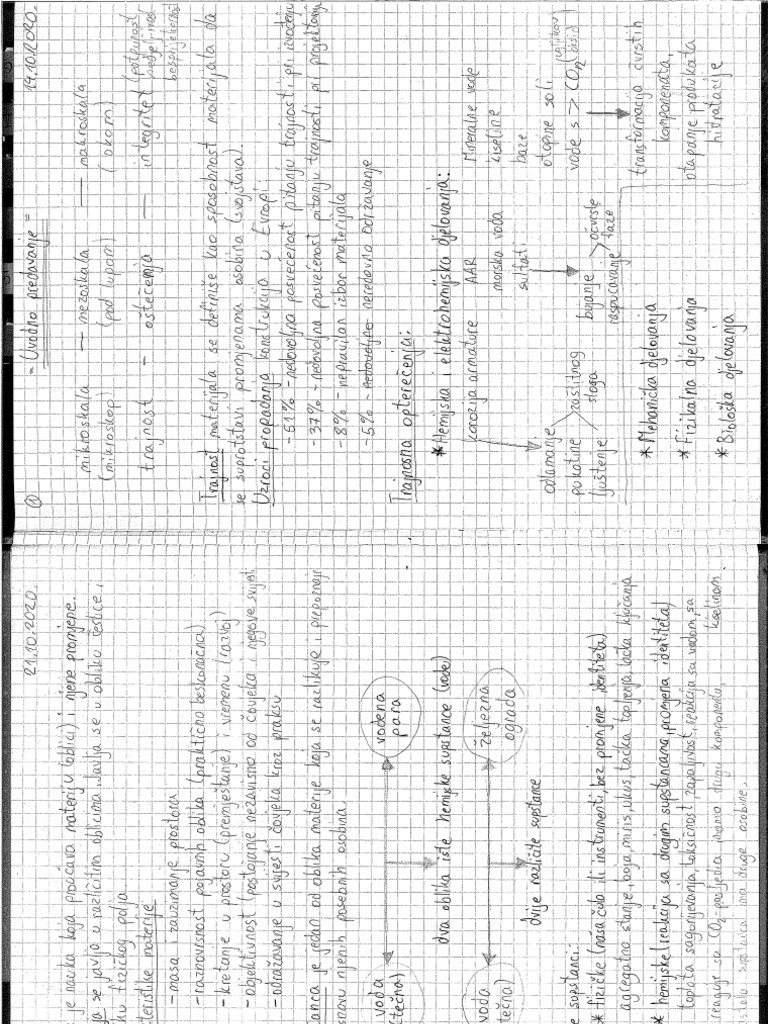 ① 14.10.2020.
= Uvodno predavanje =
mikroskala — mezoskala — makroskala
(mikroskop) (pod lupom) (okom)
trajnost — oštećenja — integritet (potpunost
besprijekornost
Trajnost materijala se definiše kao sposobnost materijala da
se suprotstavi promjenama osobina (svojstava).
Uzroci propadanja konstrukcija u Evropi:
- 51% - nedovoljna posvećenost pitanju trajnosti pri izvođenju
- 37% - nedovoljna posvećenost pitanju trajnosti pri projektovanju
- 8% - nepravilan izbor materijala
- 5% - nedovoljno neredovno održavanje
Trajnosna opterećenja:
* Hemijska i elektrohemijska djelovanja:
korozija armature
AAR
morska voda
sulfati
Mineralne vode
kiseline
baze
otopine soli
vode s > CO2
odlamanje
pukotine
ljuštenje
zaštitnog
sloja
bujanje
raspucavanje
očvrsle
faze
transformacija čvrstih
komponenata,
otapanje produkata
hidratacije
* Mehanička djelovanja
* Fizikalna djelovanja
* Biološka djelovanja
21.10.2020.
je nauka koja proučava materiju (oblici) i njene promjene.
se javlja u različitim oblicima. Javlja se u obliku čestice i
fizičkog polja
materije
- masa i zauzimanje prostora
- raznovrsnost pojavnih oblika (praktično beskonačna)
- kretanje u prostoru (premještanje) i vremenu (razvoj)
- objektivnost (postojanje nezavisno od čovjeka i njegove svijesti
- odražavanje u svijesti čovjeka kroz praksu
je jedan od oblika materije koja se razlikuje i prepoznaje
osnovu njenih posebnih osobina
voda
(tečna)
vodena
para
dva oblika iste hemijske supstance (vode)
voda
(tečna)
željezna
ograda
dvije različite supstance
supstanci:
* fizičke (naša čula ili instrumenti, bez promjene identiteta)
agregatno stanje, boja, miris, ukus, tačka topljenja, tačka ključanja
* hemijske (reakcija sa drugim supstancama, promjena identiteta)
toplota sagorijevanja, toksičnost, zapaljivost, reakcija sa vodom, sa
reaguje sa CO2 - posljedica imamo drugu komponentu, kiselinom.
supstanca ima druge osobine.